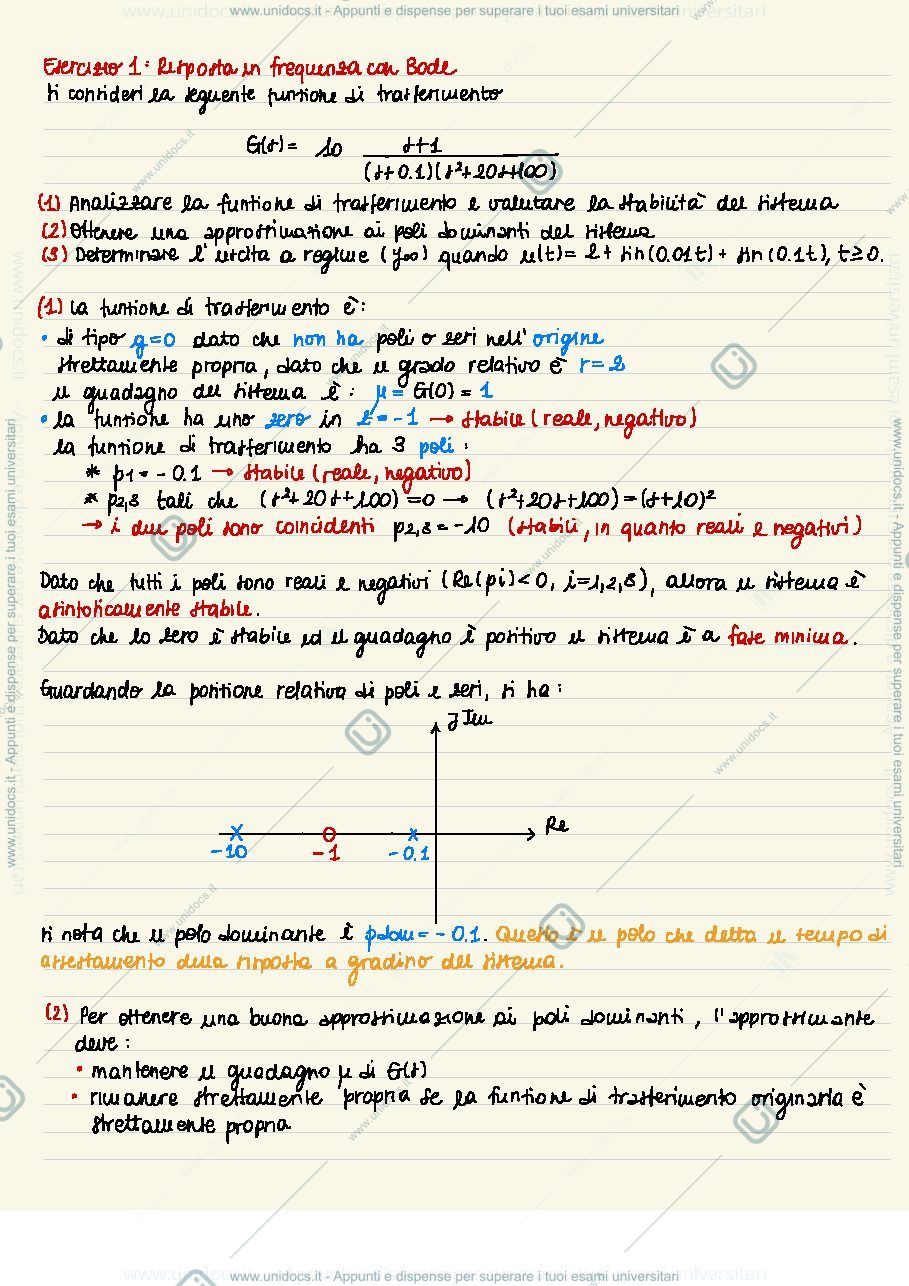 www.unidocs.it - Appunti e dispense per superare i tuoi esami universitari
Esercizio 1: Risposta in frequenza con Bode
Si consideri la seguente funzione di trasferimento
G(s) = 10 s+1
(s+0.1)(s²+20s+100)
(1) Analizzare la funzione di trasferimento e valutare la stabilità del sistema
(2) Ottenere una approssimazione ai poli dominanti del sistema
(3) Determinare l'uscita a regime (y∞) quando u(t) = 2 + sin(0.01t) + sin(0.1t), t≥0.
(1) La funzione di trasferimento è:
• di tipo g=0 dato che non ha poli o zeri nell'origine
strettamente propria, dato che il grado relativo è r=2
il guadagno del sistema è: μ = G(0) = 1
• la funzione ha uno zero in z=-1 → stabile (reale, negativo)
la funzione di trasferimento ha 3 poli:
* p1=-0.1 → stabile (reale, negativo)
* p2,3 tali che (s²+20s+100)=0 → (s²+20s+100)=(s+10)²
→ i due poli sono coincidenti p2,3=-10 (stabili, in quanto reali e negativi)
Dato che tutti i poli sono reali e negativi (Re(pi)<0, i=1,2,3), allora il sistema è
asintoticamente stabile.
Dato che lo zero è stabile ed il guadagno è positivo il sistema è a fase minima.
Guardando la posizione relativa di poli e zeri, si ha:
Im
Re
-10 -1 -0.1
Si nota che il polo dominante è pdom=-0.1. Questo è il polo che detta il tempo di
assestamento della risposta a gradino del sistema.
(2) Per ottenere una buona approssimazione ai poli dominanti, l'approssimante
deve:
• mantenere il guadagno μ di G(s)
• rimanere strettamente propria se la funzione di trasferimento originaria è
strettamente propria
www.unidocs.it - Appunti e dispense per superare i tuoi esami universitari